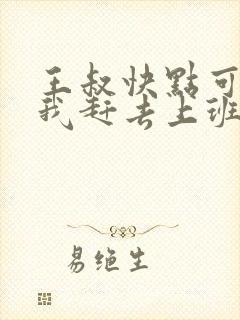 王叔快點可
我赶去上班
易绝生